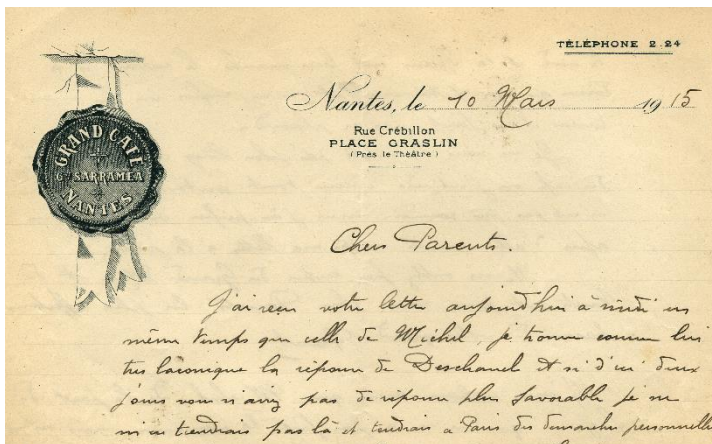 TÉLÉPHONE 2.24
GRAND CAFÉ
Gᵐ SARRAMEA
NANTES
Nantes, le 10 Mars 1915
Rue Crébillon
PLACE GRASLIN
(Près le Théâtre)
Chers Parents.
J'ai reçu votre lettre aujourd'hui à midi en
même temps que celle de Michel, je trouve comme lui
très laconique la réponse de Deschanel et si d'ici deux
jours vous n'avez pas de réponse plus favorable je ne
m'en tiendrais pas là et tendrais à Paris des demarches personnelles